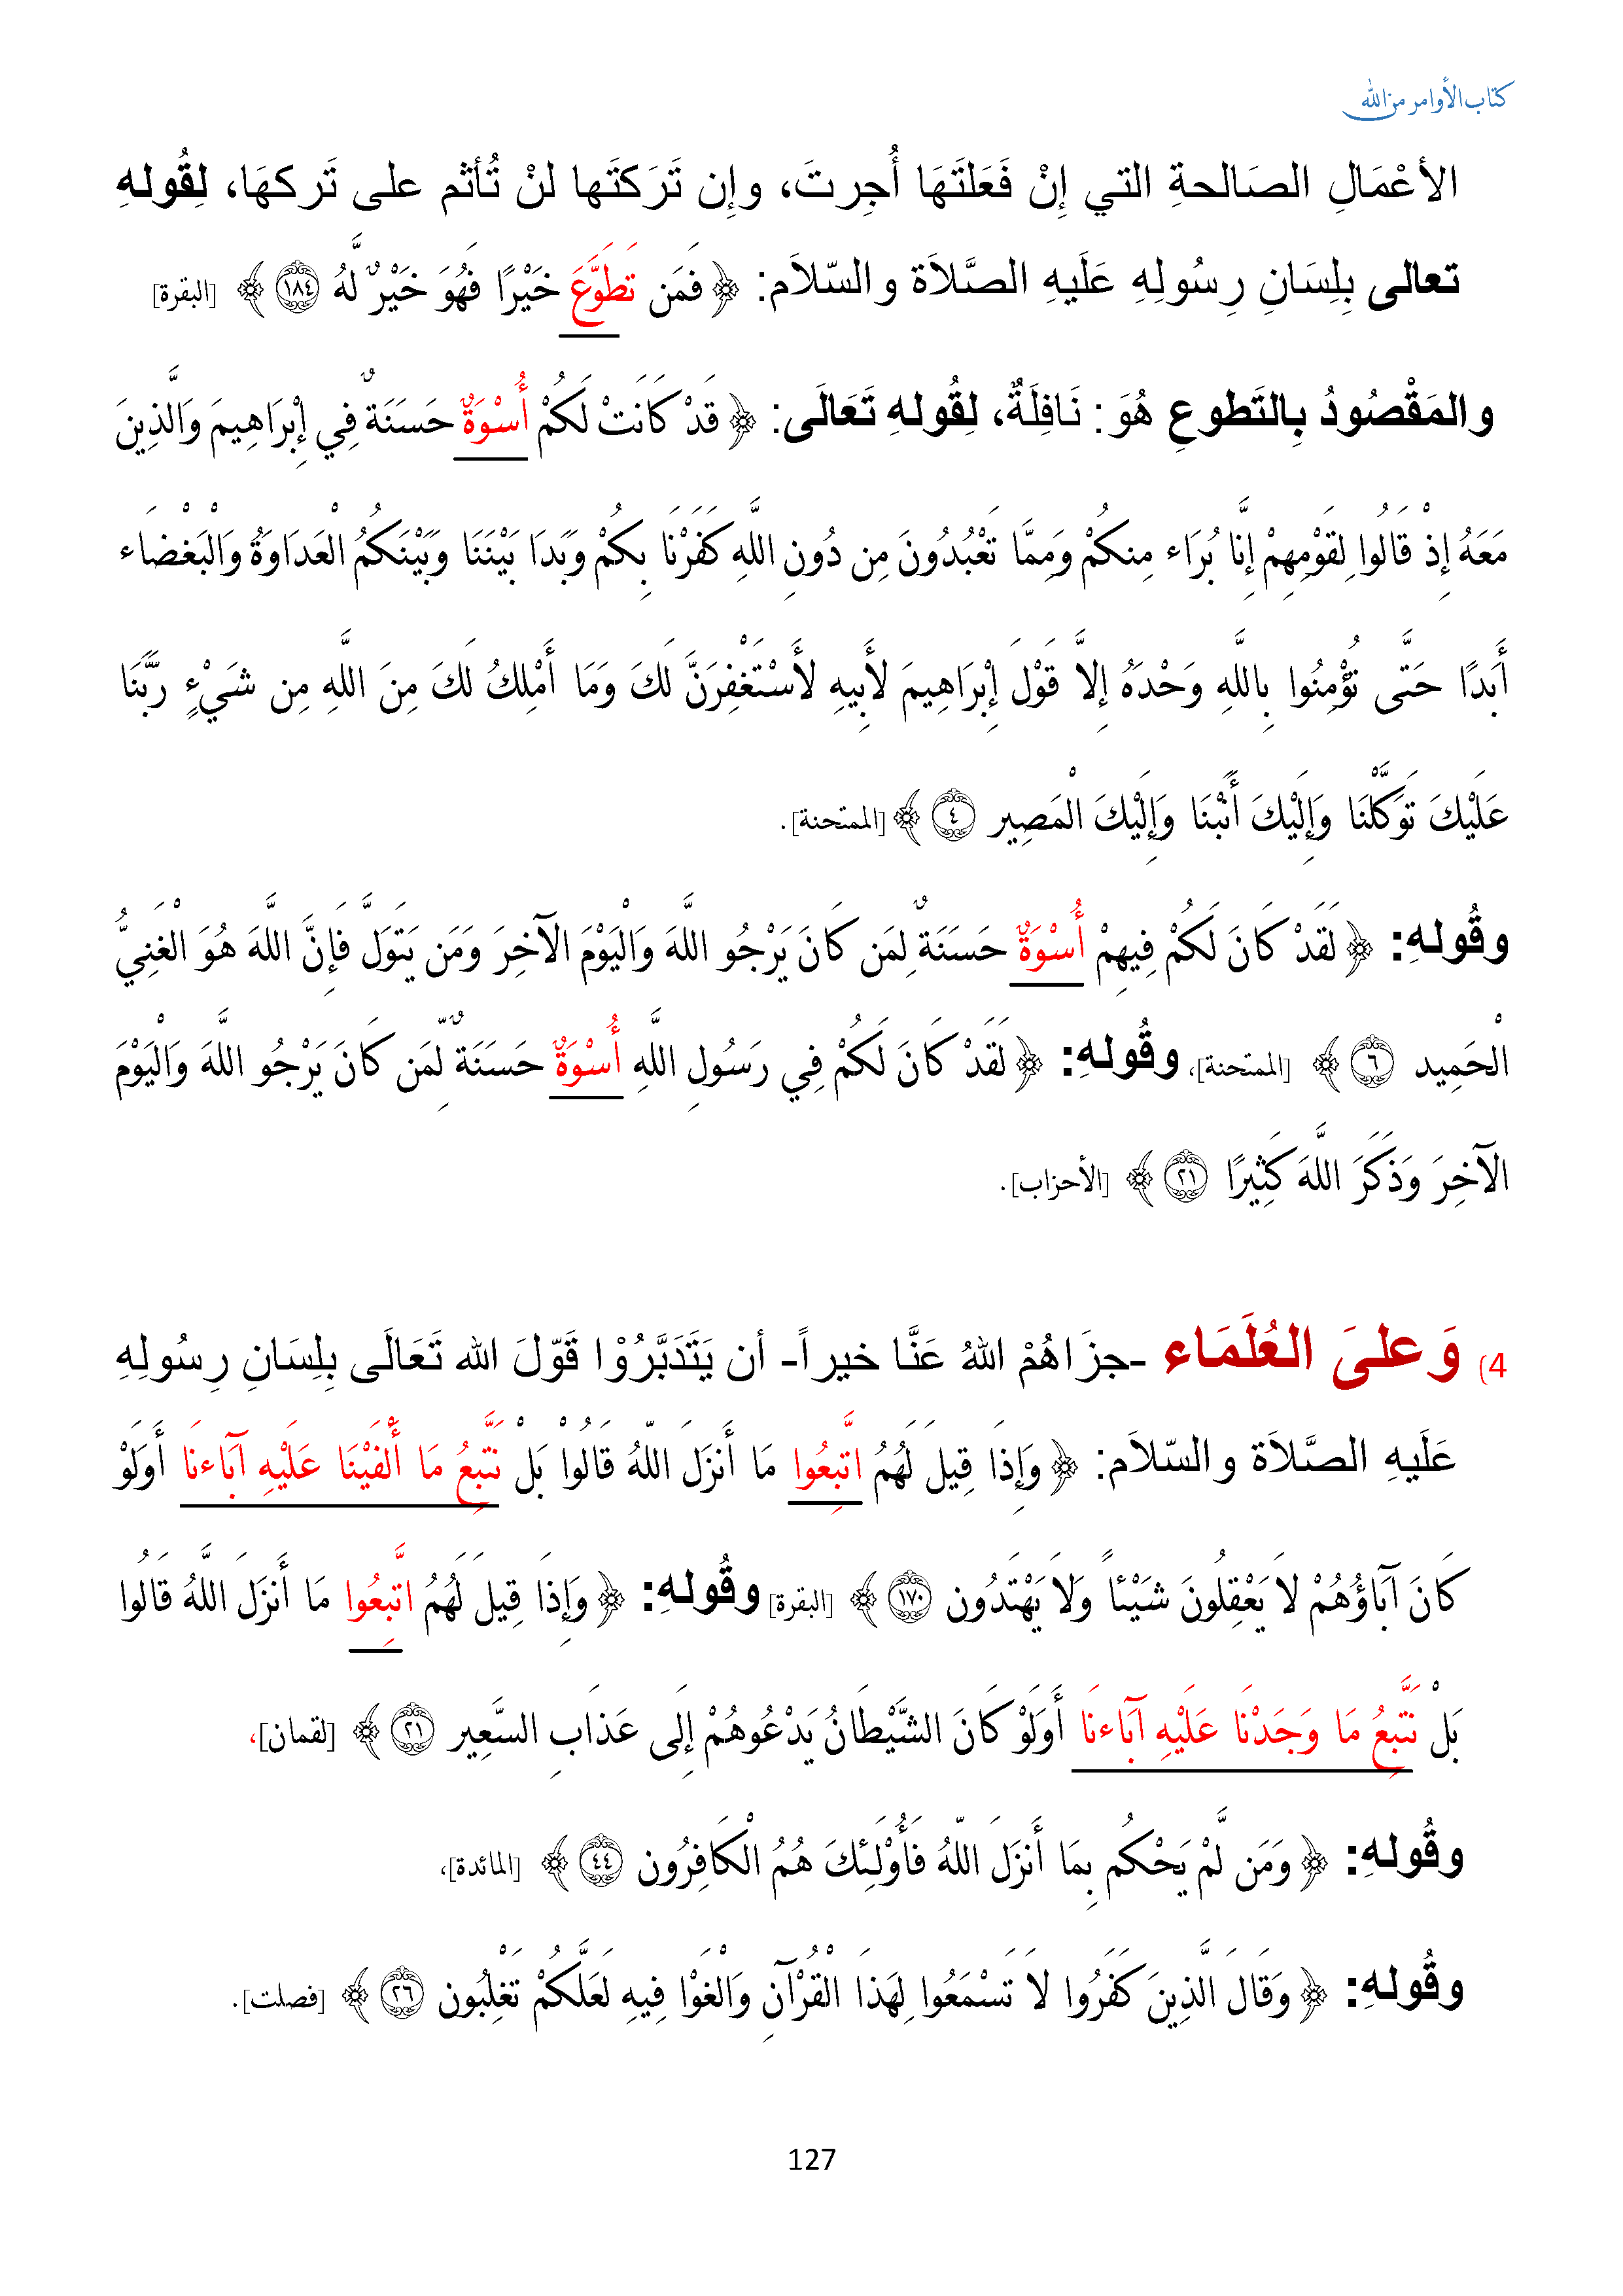 كتاب الأوامر من الله
الأعْمَالِ الصَالحةِ التي إِنْ فَعَلتَهَا أُجِرتَ، وإِن تَرَكتَها لنْ تُأثم على تَركهَا، لِقُولهِ
تعالى بِلِسَانِ رِسُولِهِ عَلَيهِ الصَّلاَة والسّلاَم: ﴿فَمَن تَطَوَّعَ خَيْرًا فَهُوَ خَيْرٌ لَّهُ ١٨٤﴾ [البقرة]
والمَقْصُودُ بِالتَطوعِ هُوَ: نَافِلَةٌ، لِقُولهِ تَعَالَى: ﴿قَدْ كَانَتْ لَكُمْ أُسْوَةٌ حَسَنَةٌ فِي إِبْرَاهِيمَ وَالَّذِينَ
مَعَهُ إِذْ قَالُوا لِقَوْمِهِمْ إِنَّا بُرَاء مِنكُمْ وَمِمَّا تَعْبُدُونَ مِن دُونِ اللَّهِ كَفَرْنَا بِكُمْ وَبَدَا بَيْنَنَا وَبَيْنَكُمُ الْعَدَاوَةُ وَالْبَغْضَاء
أَبَدًا حَتَّى تُؤْمِنُوا بِاللَّهِ وَحْدَهُ إِلاَّ قَوْلَ إِبْرَاهِيمَ لأَبِيهِ لأَسْتَغْفِرَنَّ لَكَ وَمَا أَمْلِكُ لَكَ مِنَ اللَّهِ مِن شَيْءٍ رَّبَّنَا
عَلَيْكَ تَوَكَّلْنَا وَإِلَيْكَ أَنَبْنَا وَإِلَيْكَ الْمَصِير ٤﴾ [الممتحنة].
وقُولهِ: ﴿لَقَدْ كَانَ لَكُمْ فِيهِمْ أُسْوَةٌ حَسَنَةٌ لِمَن كَانَ يَرْجُو اللَّهَ وَالْيَوْمَ الآخِرَ وَمَن يَتَوَلَّ فَإِنَّ اللَّهَ هُوَ الْغَنِيُّ
الْحَمِيد ٦﴾ [الممتحنة]، وقُولهِ: ﴿لَقَدْ كَانَ لَكُمْ فِي رَسُولِ اللَّهِ أُسْوَةٌ حَسَنَةٌ لِّمَن كَانَ يَرْجُو اللَّهَ وَالْيَوْمَ
الآخِرَ وَذَكَرَ اللَّهَ كَثِيرًا ٢١﴾ [الأحزاب].
4) وَعلىَ العُلَمَاء -جزَاهُمْ اللهُ عَنَّا خيراً- أن يَتَدَبَّرُوْا قَوّلَ الله تَعَالَى بِلِسَانِ رِسُولِهِ
عَلَيهِ الصَّلاَة والسّلاَم: ﴿وَإِذَا قِيلَ لَهُمُ اتَّبِعُوا مَا أَنزَلَ اللّهُ قَالُواْ بَلْ نَتَّبِعُ مَا أَلْفَيْنَا عَلَيْهِ آبَاءنَا أَوَلَوْ
كَانَ آبَاؤُهُمْ لاَ يَعْقِلُونَ شَيْئاً وَلاَ يَهْتَدُون ١٧٠﴾ [البقرة] وقُولهِ: ﴿وَإِذَا قِيلَ لَهُمُ اتَّبِعُوا مَا أَنزَلَ اللَّهُ قَالُوا
بَلْ نَتَّبِعُ مَا وَجَدْنَا عَلَيْهِ آبَاءنَا أَوَلَوْ كَانَ الشَّيْطَانُ يَدْعُوهُمْ إِلَى عَذَابِ السَّعِير ٢١﴾ [لقمان]،
وقُولهِ: ﴿وَمَن لَّمْ يَحْكُم بِمَا أَنزَلَ اللّهُ فَأُوْلَئِكَ هُمُ الْكَافِرُون ٤٤﴾ [المائدة]،
وقُولهِ: ﴿وَقَالَ الَّذِينَ كَفَرُوا لاَ تَسْمَعُوا لِهَذَا الْقُرْآنِ وَالْغَوْا فِيهِ لَعَلَّكُمْ تَغْلِبُون ٢٦﴾ [فصلت].
127